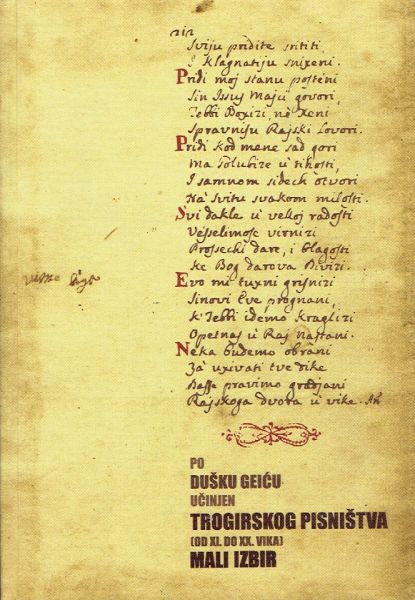 Sviju pridite srititi
I klagnatiju snixeni.
Pridi moj stanu posteni
Sin Issus Maju govori,
Tebbi Boxizi, nè xeni
Spravnisu Rajski Lovori.
Pridi kod mene sad gori
Ma Golubize ù tihosti,
I samnom sidech otvori
Na svitu svakom milosti.
Svi dakle ù velloj radosti
Vesselimose virnizi
Prossechi dare, i blagosti
Ke Bog darova Divizi.
Evo mi tuxni grisnizi
Sinovi Eve prognani,
k'Tebbi idemo kraglizi
Opetnaj ù Raj nastani.
Neka budemo obrani
Za uxivati tve dike
Basse pravimo grodjani
Rajskoga dvora ù vike.
PO
DUŠKU GEIĆU
UČINJEN
TROGIRSKOG PISNIŠTVA
(OD XI. DO XX. VIKA)
MALI IZBIR